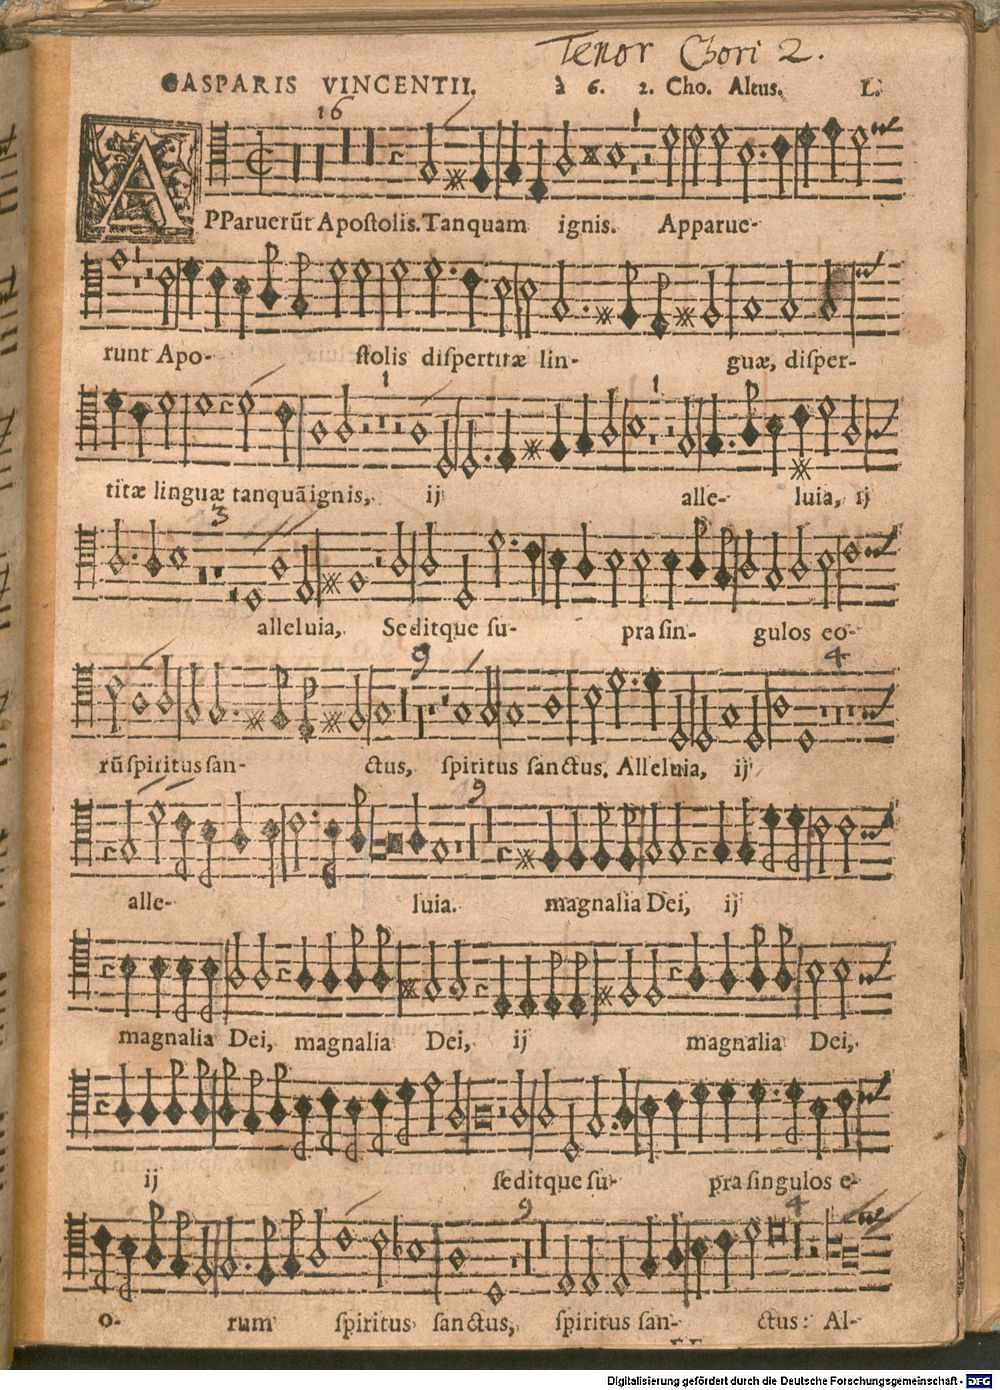 Tenor Chori 2.
GASPARIS VINCENTII. à 6. 2. Cho. Altus. L.
16
1
APParuerũt Apostolis. Tanquam ignis. Apparue-
1
runt Apo- stolis dispertitæ lin- guæ, disper-
1 1
titæ linguæ tanquã ignis, ij alle- luia, ij
3
alleluia, Seditque su- pra sin- gulos eo-
9 4
rũ spiritus san- ctus, spiritus sanctus. Alleluia, ij
9
alle- luia. magnalia Dei, ij
magnalia Dei, magnalia Dei, ij magnalia Dei,
ij seditque su- pra singulos e-
9 4
o- rum spiritus sanctus, spiritus san- ctus: Al-
Digitalisierung gefördert durch die Deutsche Forschungsgemeinschaft - DFG